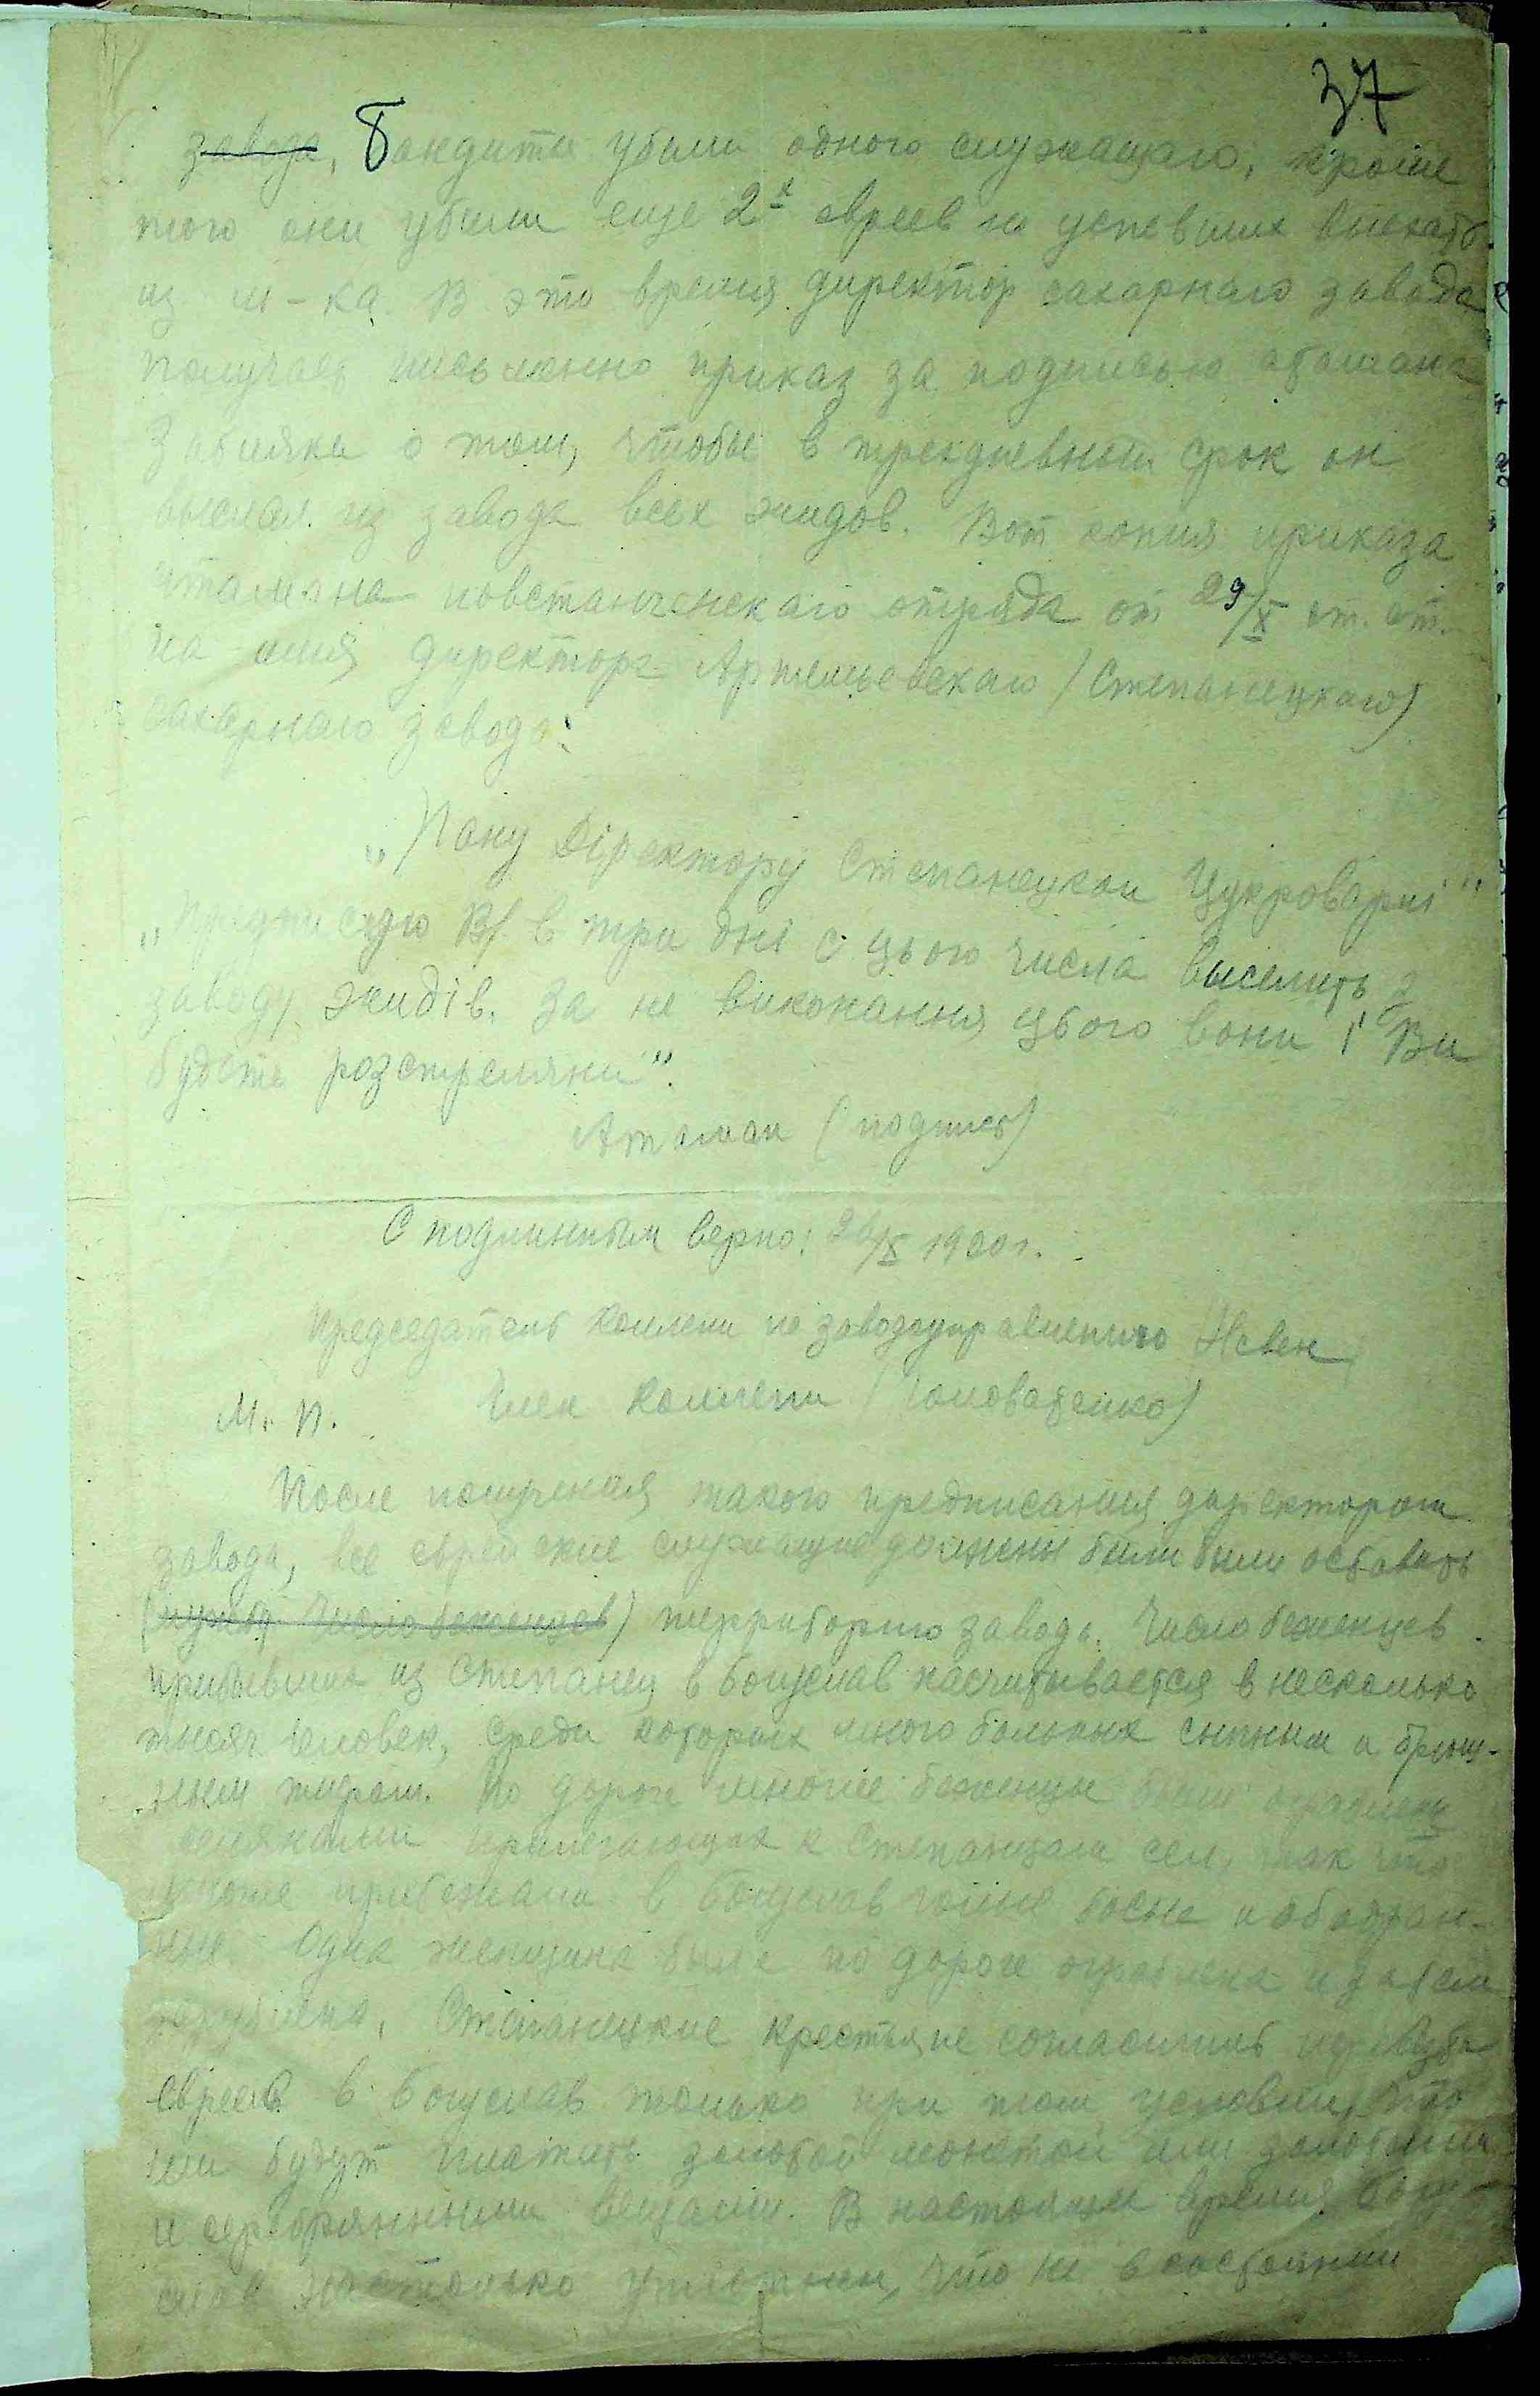 37
завода, Бандиты убили одного служащаго, кроме
того они убили еще 2х евреев не успевших выехать
из м-ка. В это время директор сахарнаго завода
получает письменно приказ за подписью атамана
о том, чтобы в трехдневный срок он
выслал из завода всех жидов. Вот копия приказа
атамана повстанческаго отряда от 29/X ст. ст.
на имя директора Артемьевскаго (Степанецкаго)
сахарнаго завода:
„Пану Діректору Степанецкои Цукроварні"
„Предписую Вам в три дні с цього числа выселить з
заводу жидів. За не виконання цього вони і Ви
будете розстреляни".
Атаман (подпись)
С подлинным верно: 26/X 1920 г.
Председатель Коллегии по заводоуправлению
М. П. Член Коллегии (Головатенко)
После получения такого предписания директором
завода, все еврейские служащие должны были были оставить
(службу. Число беженцев) территорию завода. Число беженцев
прибывших из Степанец в Богуслав насчитывается в несколько
тысяч человек, среди которых много больных сыпным и брюш-
ным тифом. По дороге многие беженцы были ограблены
селянами прилегающих к Степанцам сел, так что
многие прибежали в Богуслав голые босые и оборван-
ные. Одна женщина была по дороге ограблена и затем
Степанецкие крестьяне согласились
евреев в Богуслав только при том условии, что
им будут платить золотой монетой или золотыми
и серебрянными вещами. В настоящем время Богу-
слав настолько что не в состоянии